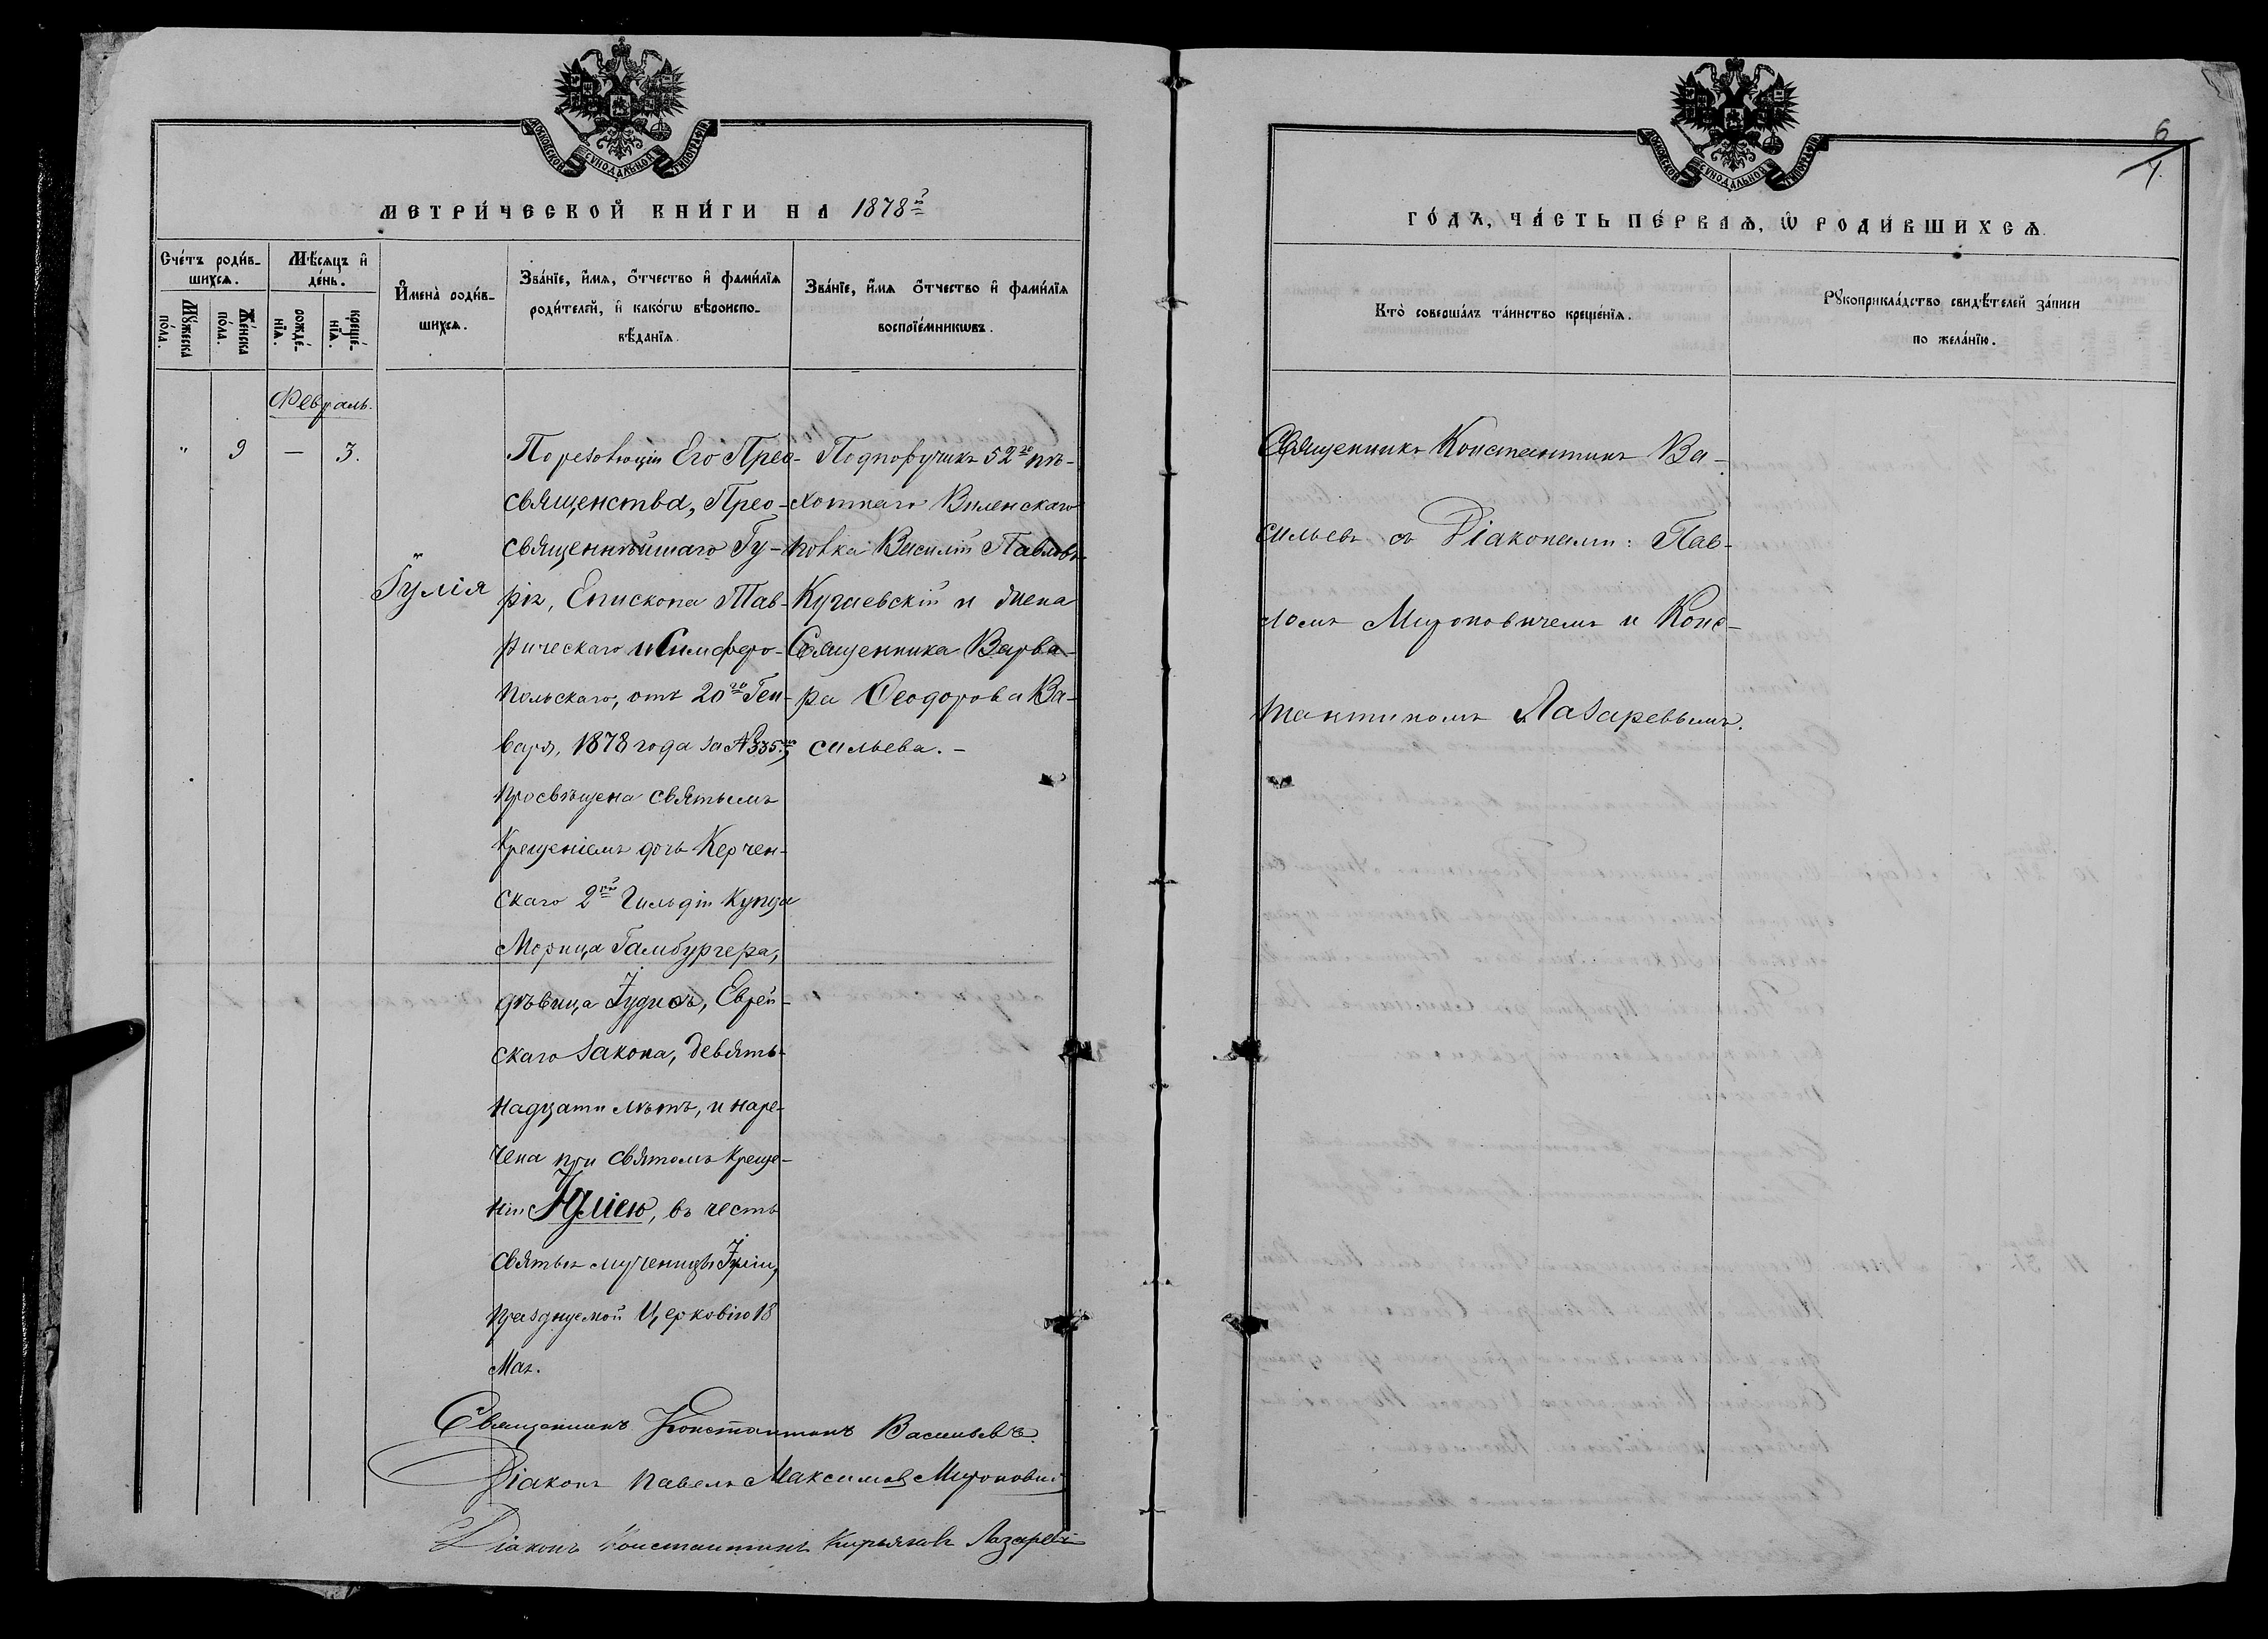 МОСКОВСКОЙ СѴНОДАЛЬНОЙ ТИПОГРАФІИ
МЕТРИ́ЧЕСКОЙ КНИ́ГИ НА 1878й
Сче́тъ роди́в-
шихсѧ.
Мѣ́сѧцъ и҆
де́нь.
Мꙋ́жеска
по́ла.
Же́нска
по́ла.
рожде́-
нїѧ.
креще́-
нїѧ.
И҆мена̀ роди́в-
шихсѧ.
Зва́нїе, и҆́мѧ, ѻ҆́тчество и҆ фами́лїѧ
роди́телей, и҆ како́гѡ вѣроиспо-
вѣ́данїѧ.
Зва́нїе, и҆́мѧ ѻ҆́тчество и҆ фами́лїѧ
воспрїе́мникѡвъ.
Февраль.
" 9 — 3.
Іулія
По резолюціи Его Прео-
священства, Прео-
священнѣйшаго Гу-
рія, Епископа Тав-
рическаго и Симферо-
польскаго, отъ 20го Ген-
варя, 1878 года за № 335мъ,
просвѣщена святымъ
Крещеніемъ дочь Керчен-
скаго 2й Гильдіи Купца
Морица Гамбургера,
дѣвица Іудиѳь, Еврей-
скаго закона, девять-
надцати лѣтъ, и наре-
чена при святомъ Креще-
ніи Іуліею, въ честь
святыя мученицы Іуліи,
празднуемой Церковію 18
Мая.
Подпоручикъ 52го пѣ-
хотнаго Виленскаго
полка Василій Павловъ
Кугаевскій и жена
Священника Варва-
ра Ѳеодорова Ва-
сильева. –
Священникъ Константинъ Васильевъ
Діаконъ Павелъ Максимовъ Мироновичъ
Діаконъ Константинъ Кирьяковъ Лазаревъ
МОСКОВСКОЙ СѴНОДАЛЬНОЙ ТИПОГРАФІИ
6
ГО́ДЪ, ЧА́СТЬ ПЕ́РВАѦ, Ѡ҆ РОДИ́ВШИХСѦ
Кто̀ соверша́лъ та́инство креще́нїѧ.
Рꙋкоприкла́дство свидѣ́телей за́писи
по жела́нїю.
Священникъ Константинъ Ва-
сильевъ съ Діаконами: Пав-
ломъ Мироновичемъ и Конс-
тантиномъ Лазаревымъ.